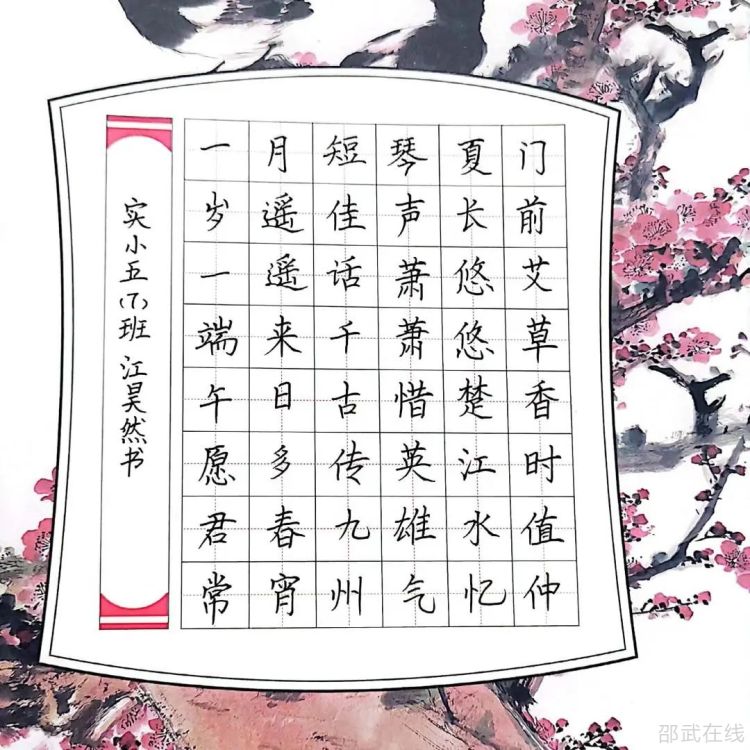 门前艾草香时值仲
夏长悠悠楚江水忆
琴声萧萧惜英雄气
短佳话千古传九州
月遥遥来日多春宵
一岁一端午愿君常
实小五(7)班 江昊然书
邵武在线